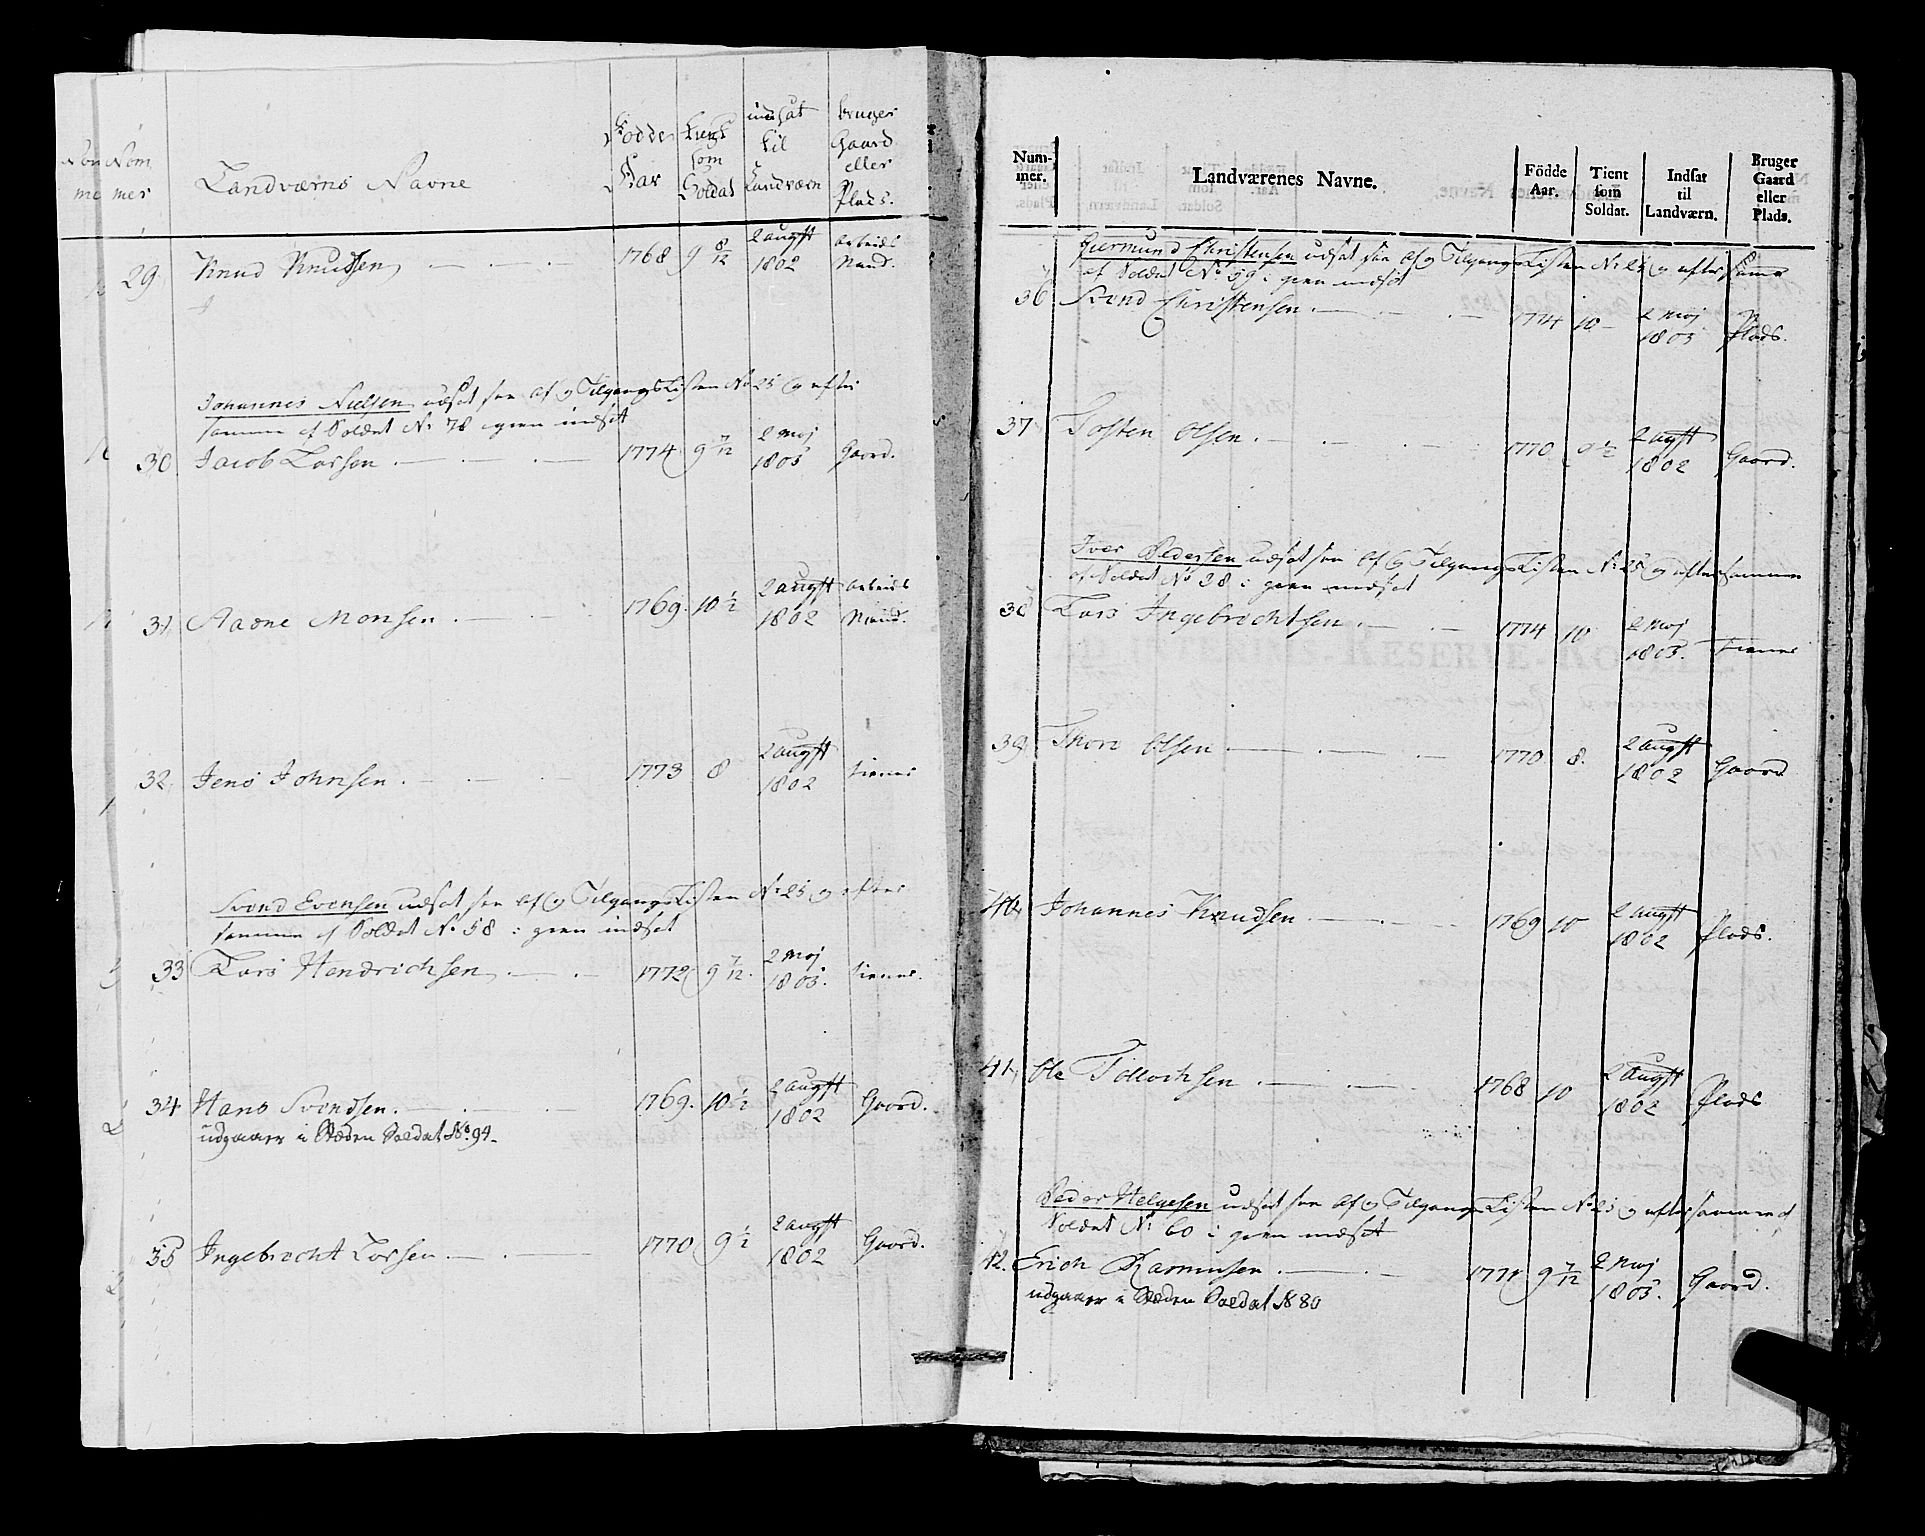 Nom
mer
Landværns Navne
Fødde
Aar
tient
som
Soldat
indsat
til
Landværn
bruger
Gaard
eller
Plads.
29. Knud Knudsen 1768 9 8/12 2 augst 1802 arbeids Mand.
Johannes Nielsen udsat see Af og TilgangsListen No 25 og efter
samme af Soldat No 78 igien indsat
30. Jacob Larsen 1774 9 7/12 2 Maj 1805 Gaard.
31, Aadne Monsen 1769. 10 1/2 2 augst 1802 arbeids Mand.
32, Jens Johnsen 1773 8 2 augst 1802 tiener
Svend Evensen udsat see Af og TilgangsListen No 25 og efter
samme af Soldat No 58 igien indsat
33 Lars Hendrichsen 1772 9 7/12. 2 Maj 1805. tiener.
34 Hans Svendsen. 1769. 10 1/2 2 augst 1802 Gaard.
udgaaer i Steden Soldat No. 94.
35 Ingebrecht Larsen 1770 9 1/2 2 augst 1802 Gaard.
Num-
mer.
Landværenes Navne.
Födde
Aar.
Tient
som
Soldat.
Indsat
til
Landværn.
Bruger
Gaard
eller
Plads.
Giermund Christensen udsat see Af og TilgangsListen No 25 og efter samme
af Soldat No 59 igien indsat
36 Svend Christensen. 1774 10 2 Maj 1805 Plads.
37 Tosten Olsen. 1770 9 1/2 2 augst 1802 Gaard.
Iver Pedersen udsat see Af og TilgangsListen No 25 og efter samme
af Soldat No 38 igien indsat
38 Lars Ingebrechtsen. 1774 10 2 Maj 1805. tiener
39, Thore Olsen 1770 8. 2 augst 1802 Gaard
40, Johannes Knudsen 1769 10 2 augst 1802 Plads.
41, Ole Tollochsen 1768 10 2 augst 1802 Plads
Peder Helgesen udsat see Af og TilgangsListen No 25 og efter samme af
Soldat No 60 igien indsat
42. Erich Rasmusen 1771 9 7/12 2 Maj 1805. Gaard.
udgaaer i Steden Soldat No 80